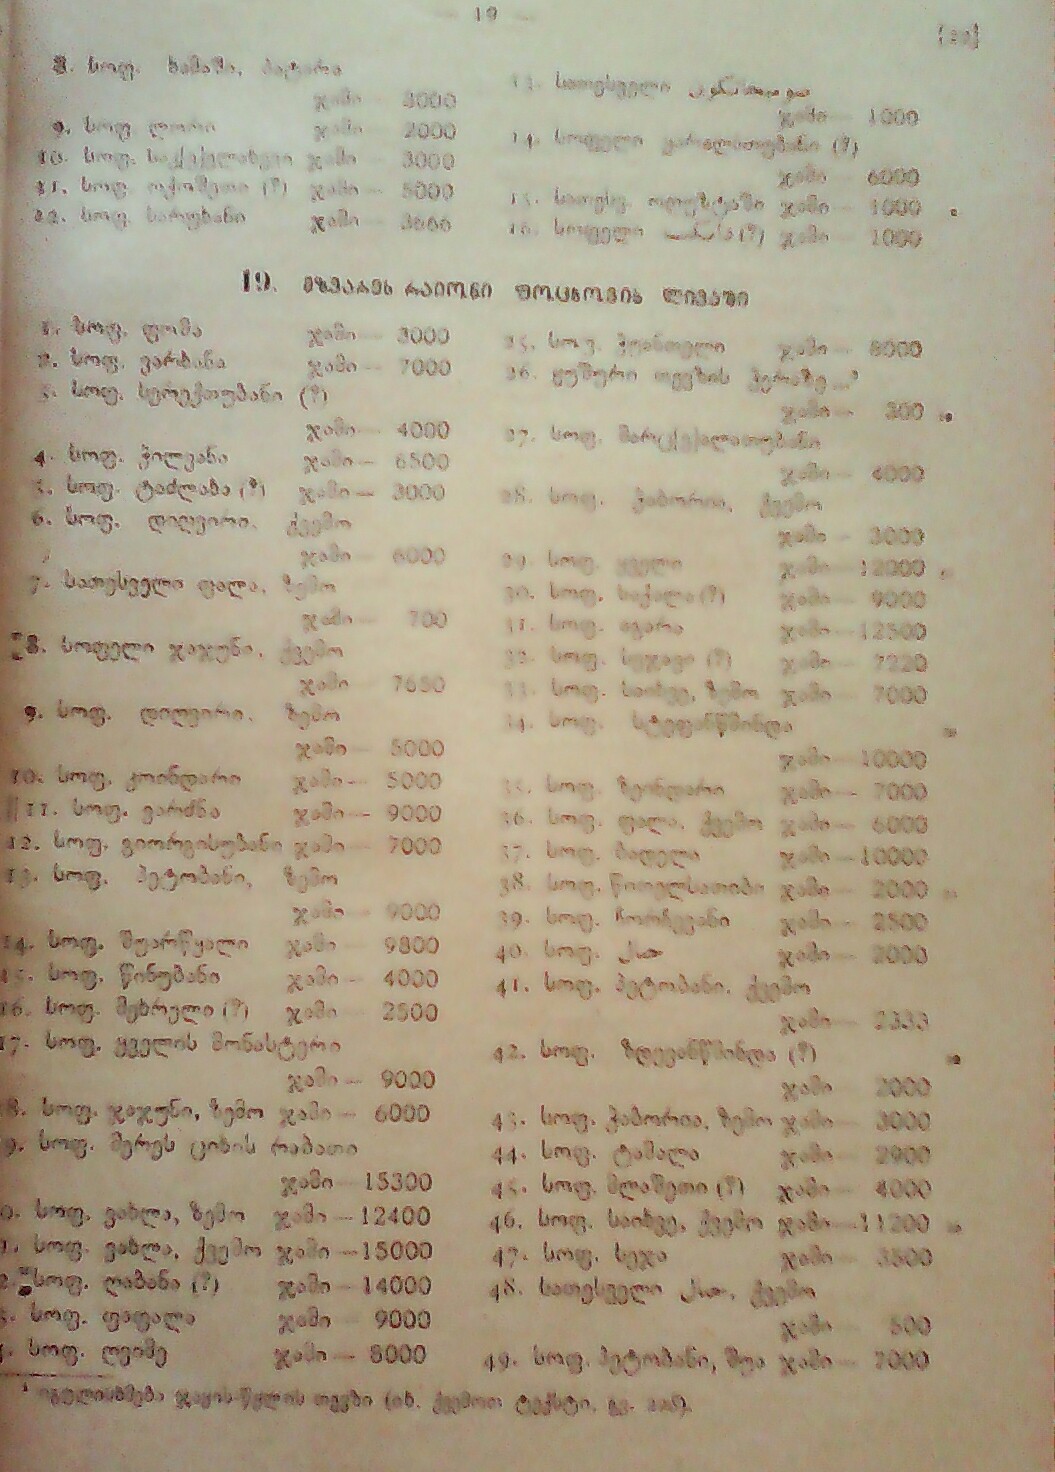 — 19 —
8. სოფ. ხამაში, პატარა
ჯამი — 3000
9. სოფ ლორი ჯამი — 2000
10. სოფ. ჯამი — 3000
11. სოფ. ოქოშეთი (?) ჯამი — 5000
12. სოფ. სარუბანი ჯამი — 3666
13. სათესველი
ჯამი — 1000
14. სოფელი (?)
ჯამი — 6000
15. სათესვ. ჯამი — 1000
16. სოფელი (?) ჯამი — 1000
19. მზვარეს რაიონი ფოცხოვის ლივაში
1. სოფ. ფომა ჯამი — 3000
2. სოფ. ვარხანა ჯამი — 7000
3. სოფ. სერექთუბანი (?)
ჯამი — 4000
4. სოფ. ჭილვანა ჯამი — 6500
5. სოფ. ტაძლაბა (?) ჯამი — 3000
6. სოფ. დიღვირი, ქვემო
ჯამი — 6000
7. სათესველი ფალა, ზემო
ჯამი — 700
8. სოფელი ჯაჯუნი, ქვემო
ჯამი — 7650
9. სოფ. დიღვირი, ზემო
ჯამი — 5000
10. სოფ. კოინდარი ჯამი — 5000
11. სოფ. ვარძნა ჯამი — 9000
12. სოფ. გიორგისუბანი ჯამი — 7000
13. სოფ. პეტობანი, ზემო
ჯამი — 9000
14. სოფ. შუარწყალი ჯამი — 9800
15. სოფ. წინუბანი ჯამი — 4000
16. სოფ. მეხრული (?) ჯამი — 2500
17. სოფ. ყველის მონასტერი
ჯამი — 9000
8. სოფ. ჯაჯუნი, ზემო ჯამი — 6000
9. სოფ. მერეს ციხის რაბათი
ჯამი — 15300
0. სოფ. ვახლა, ზემო ჯამი — 12400
სოფ. ვახლა, ქვემო ჯამი — 15000
2. სოფ. ღიბანი (?) ჯამი — 14000
სოფ. ფაფალა ჯამი — 9000
სოფ. ღეიმე ჯამი — 8000
25. სოფ. ჭღინთელი ჯამი — 8000
26. ყუშური თევზის ჭერაზე...¹
ჯამი — 300
27. სოფ.
ჯამი — 4000
28. სოფ. ჭაბორია, ქვემო
ჯამი — 3000
29. სოფ. ყველი ჯამი — 12000
30. სოფ. საქალა (?) ჯამი — 9000
31. სოფ. აგარა ჯამი — 12500
32. სოფ. (?) ჯამი — 7220
33. სოფ. საიხვე, ზემო ჯამი — 7000
34. სოფ. სტეფანწმინდა
ჯამი — 10000
35. სოფ. ზენდარი ჯამი — 7000
36. სოფ. ფალა, ქვემო ჯამი — 6000
37. სოფ. ბადელა ჯამი — 10000
38. სოფ. წითელსათიბი ჯამი — 2000
39. სოფ. ჩორჩევანი ჯამი — 2500
40. სოფ. ჯამი — 2000
41. სოფ. პეტობანი, ქვემო
ჯამი — 2333
42. სოფ. ზდევანწმინდა (?)
ჯამი 2000
43. სოფ. ჭაბორია, ზემო ჯამი — 3000
44. სოფ. ტამალა ჯამი — 2900
45. სოფ. მლაშეთი (?) ჯამი — 4000
46. სოფ. საიხვე, ქვემო ჯამი — 11200
47. სოფ. სეჯა ჯამი — 3500
48. სათესველი ქვემო
ჯამი — 500
49. სოფ. პეტობანი, შუა ჯამი — 7000
¹ იგულისხმება ჯაყის-წყლის თევზი (იხ. ქვემოთ ტექსტი, გვ.